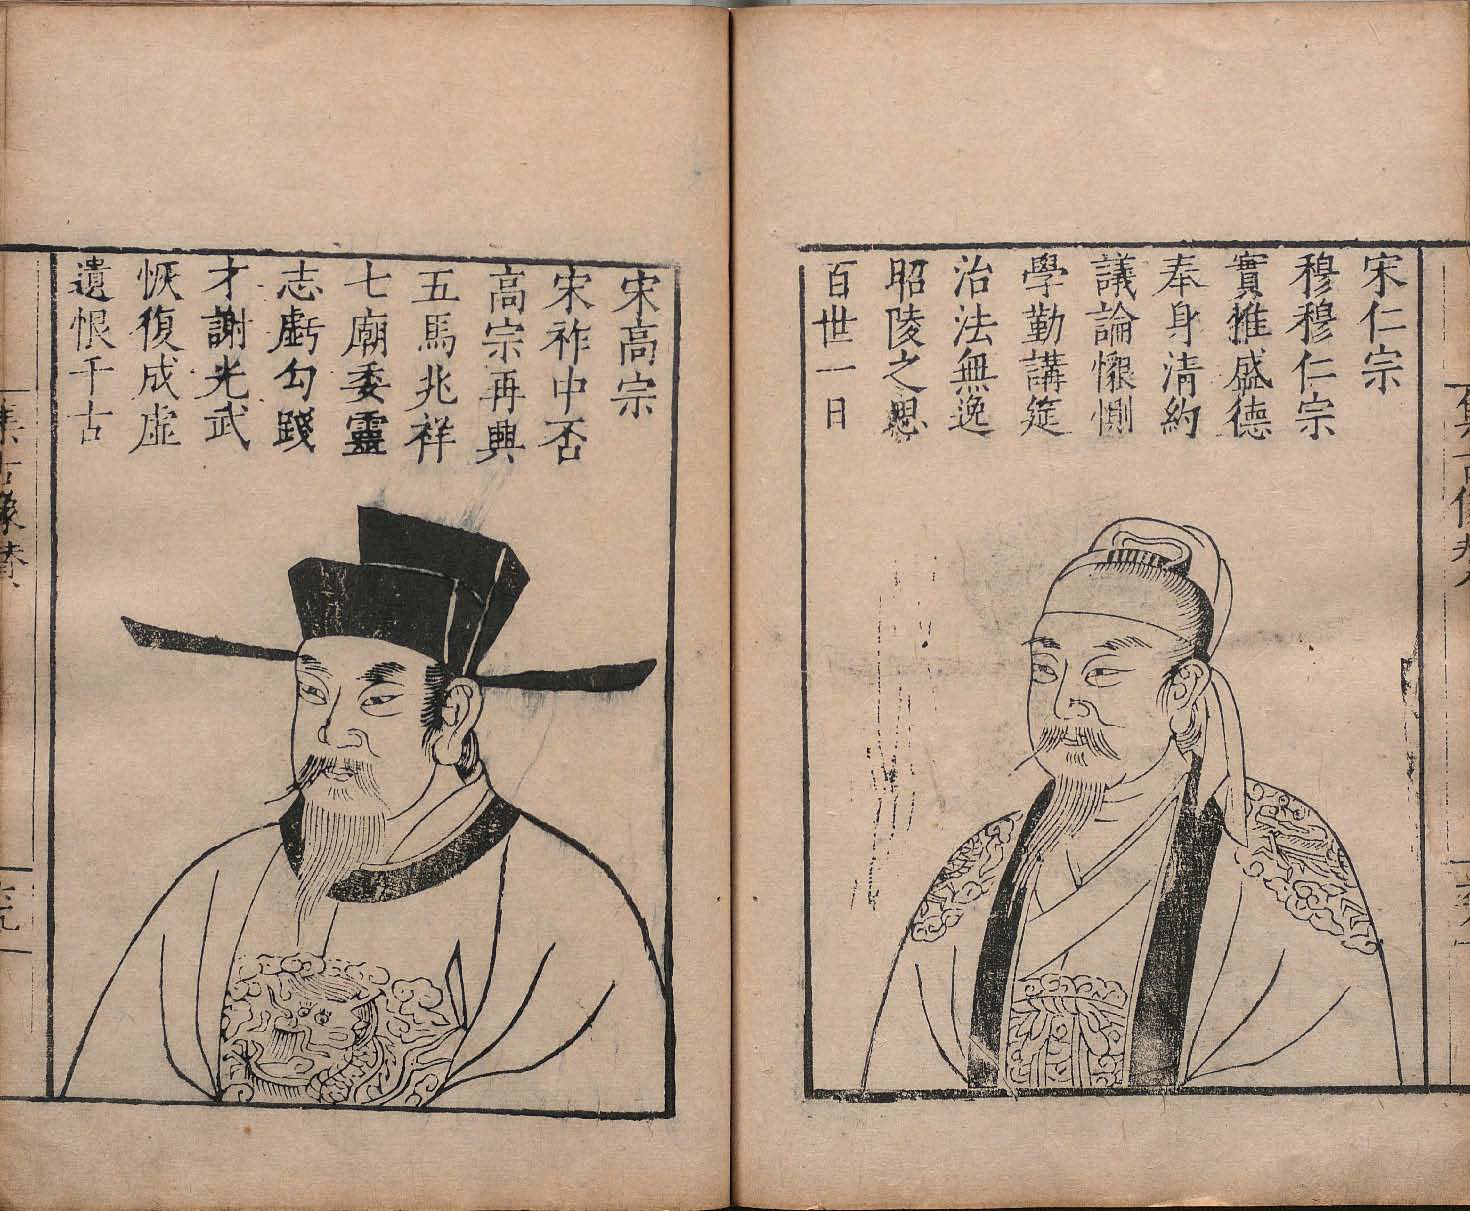 宋仁宗
穆穆仁宗
實惟盛德
奉身清約
議論懷惻
學勤講筵
治法無逸
昭陵之思
百世一日
宋高宗
宋祚中否
高宗再興
五馬兆祥
七廟委靈
志虧勾踐
才謝光武
恢復成虛
遺恨千古
集古像贊